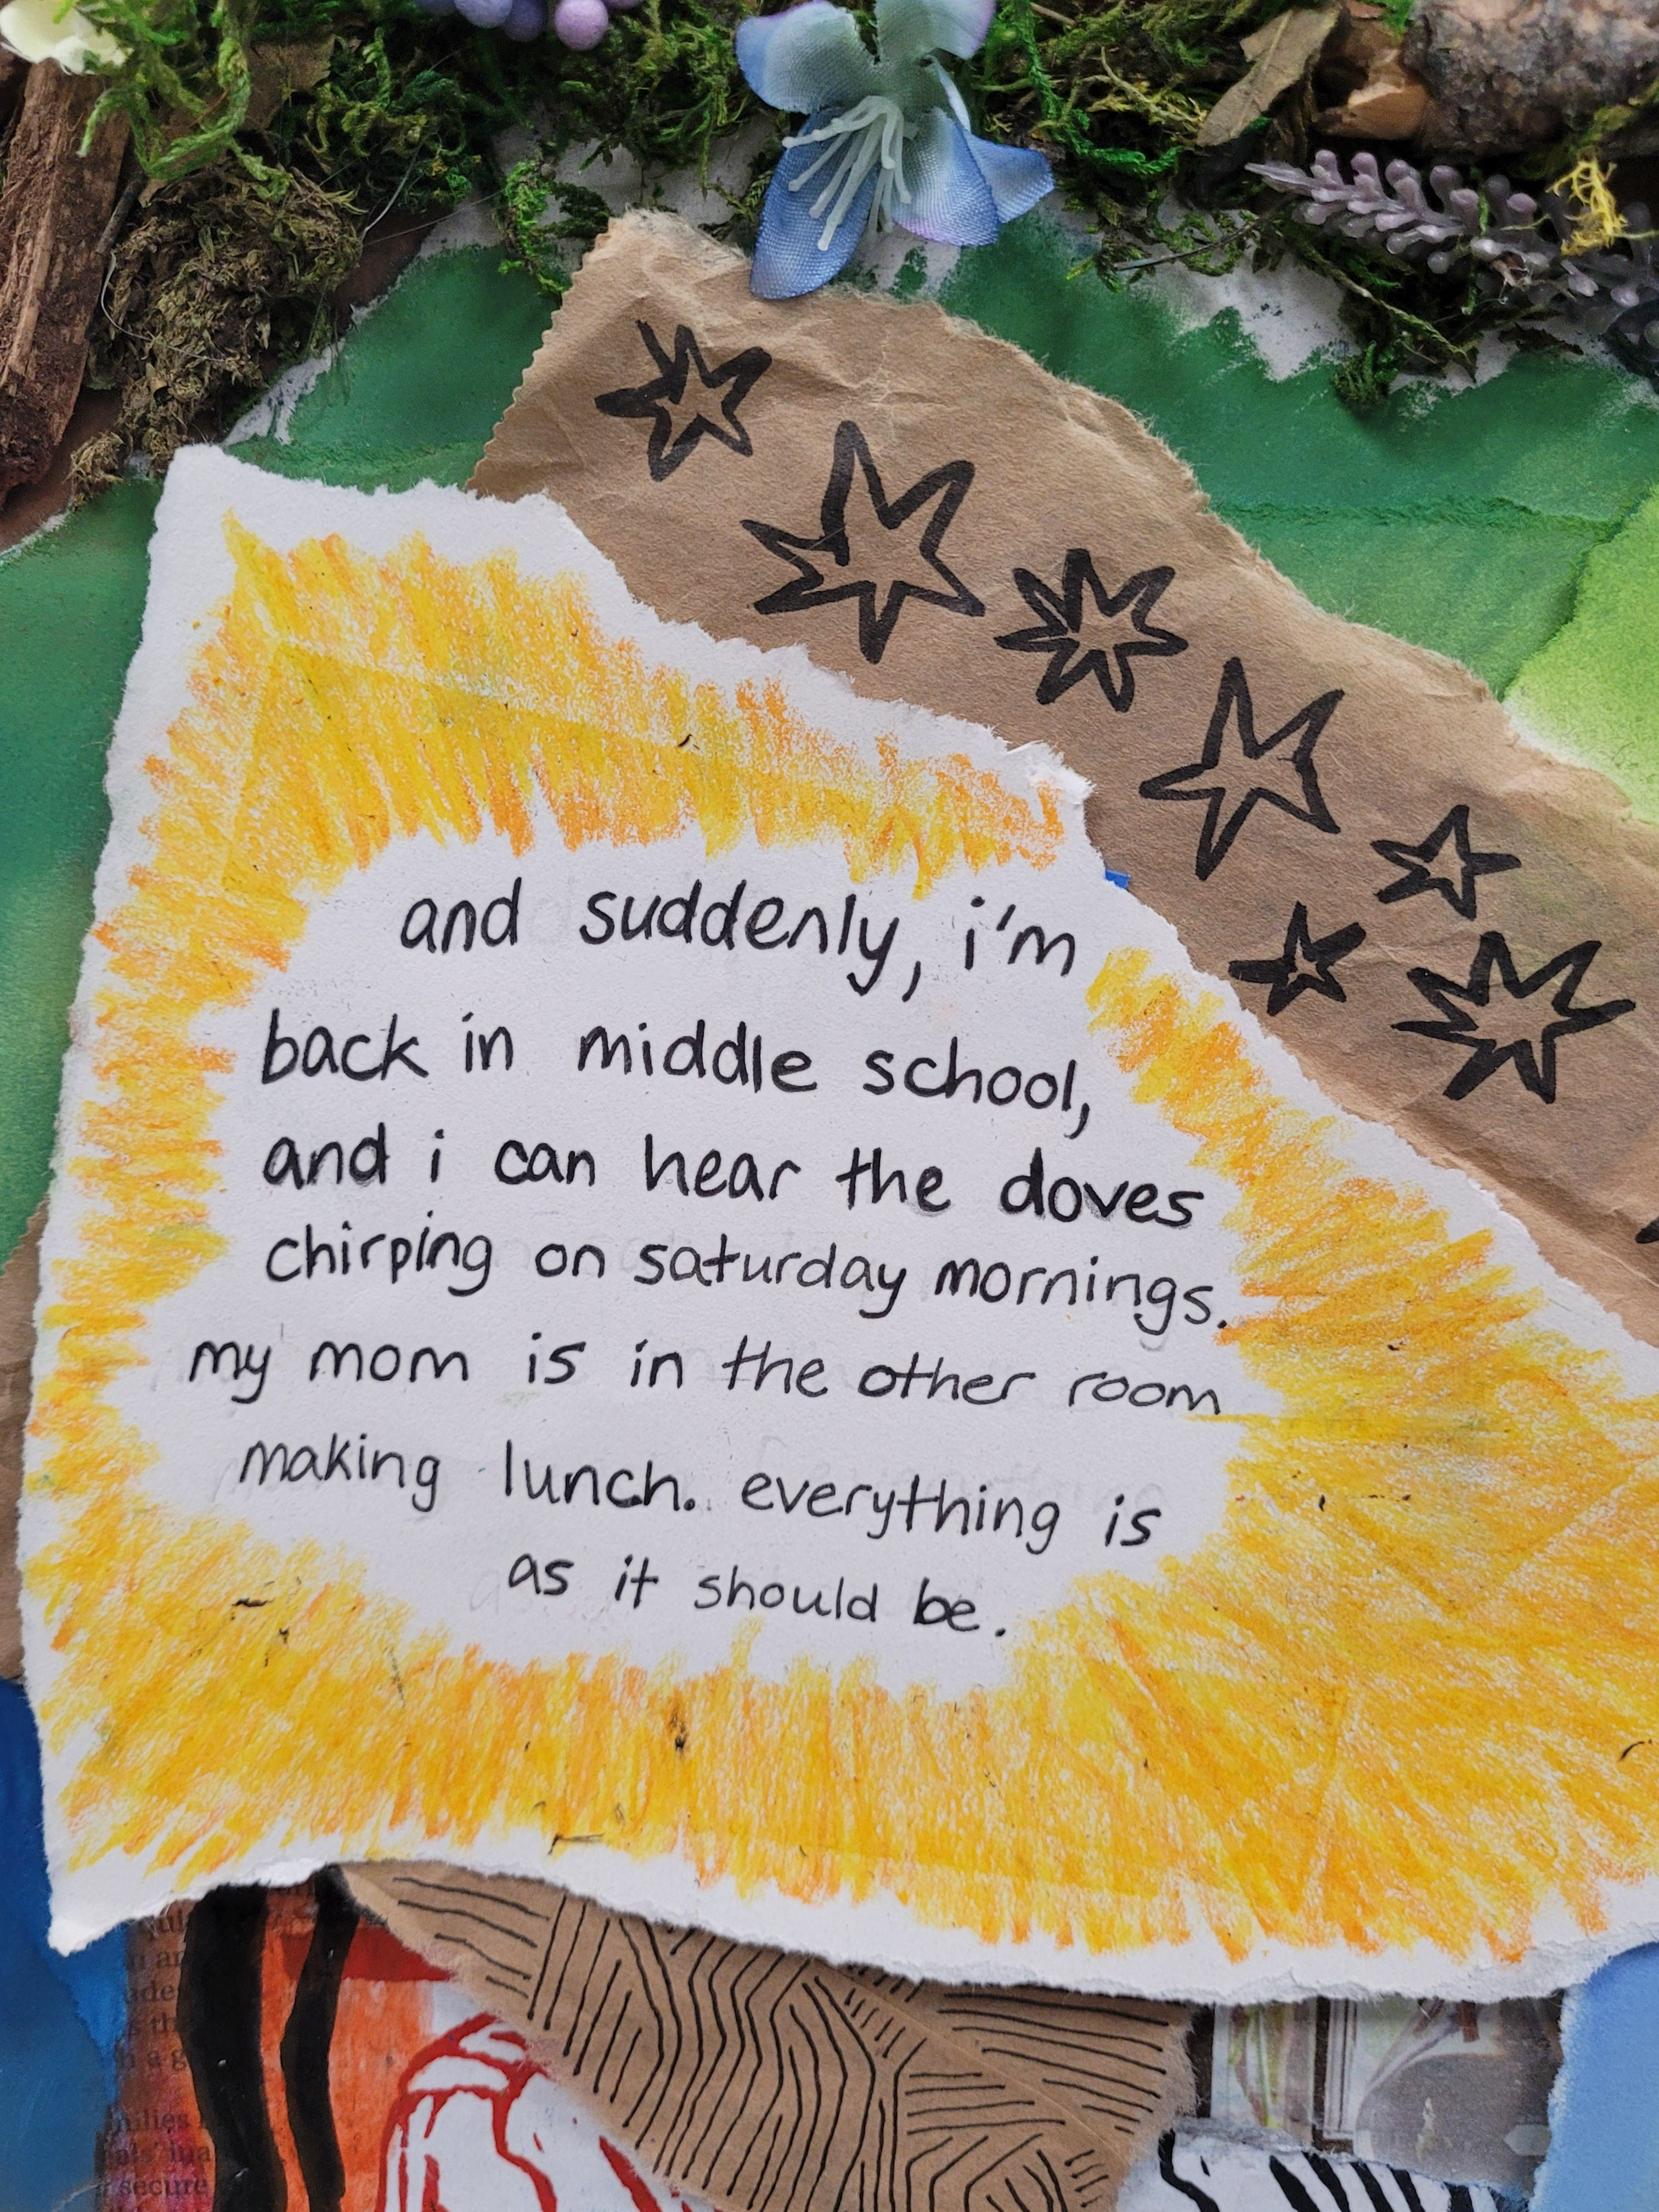 and suddenly, i'm
back in middle school,
and i can hear the doves
chirping on saturday mornings.
my mom is in the other room
making lunch. everything is
as it should be.
secure